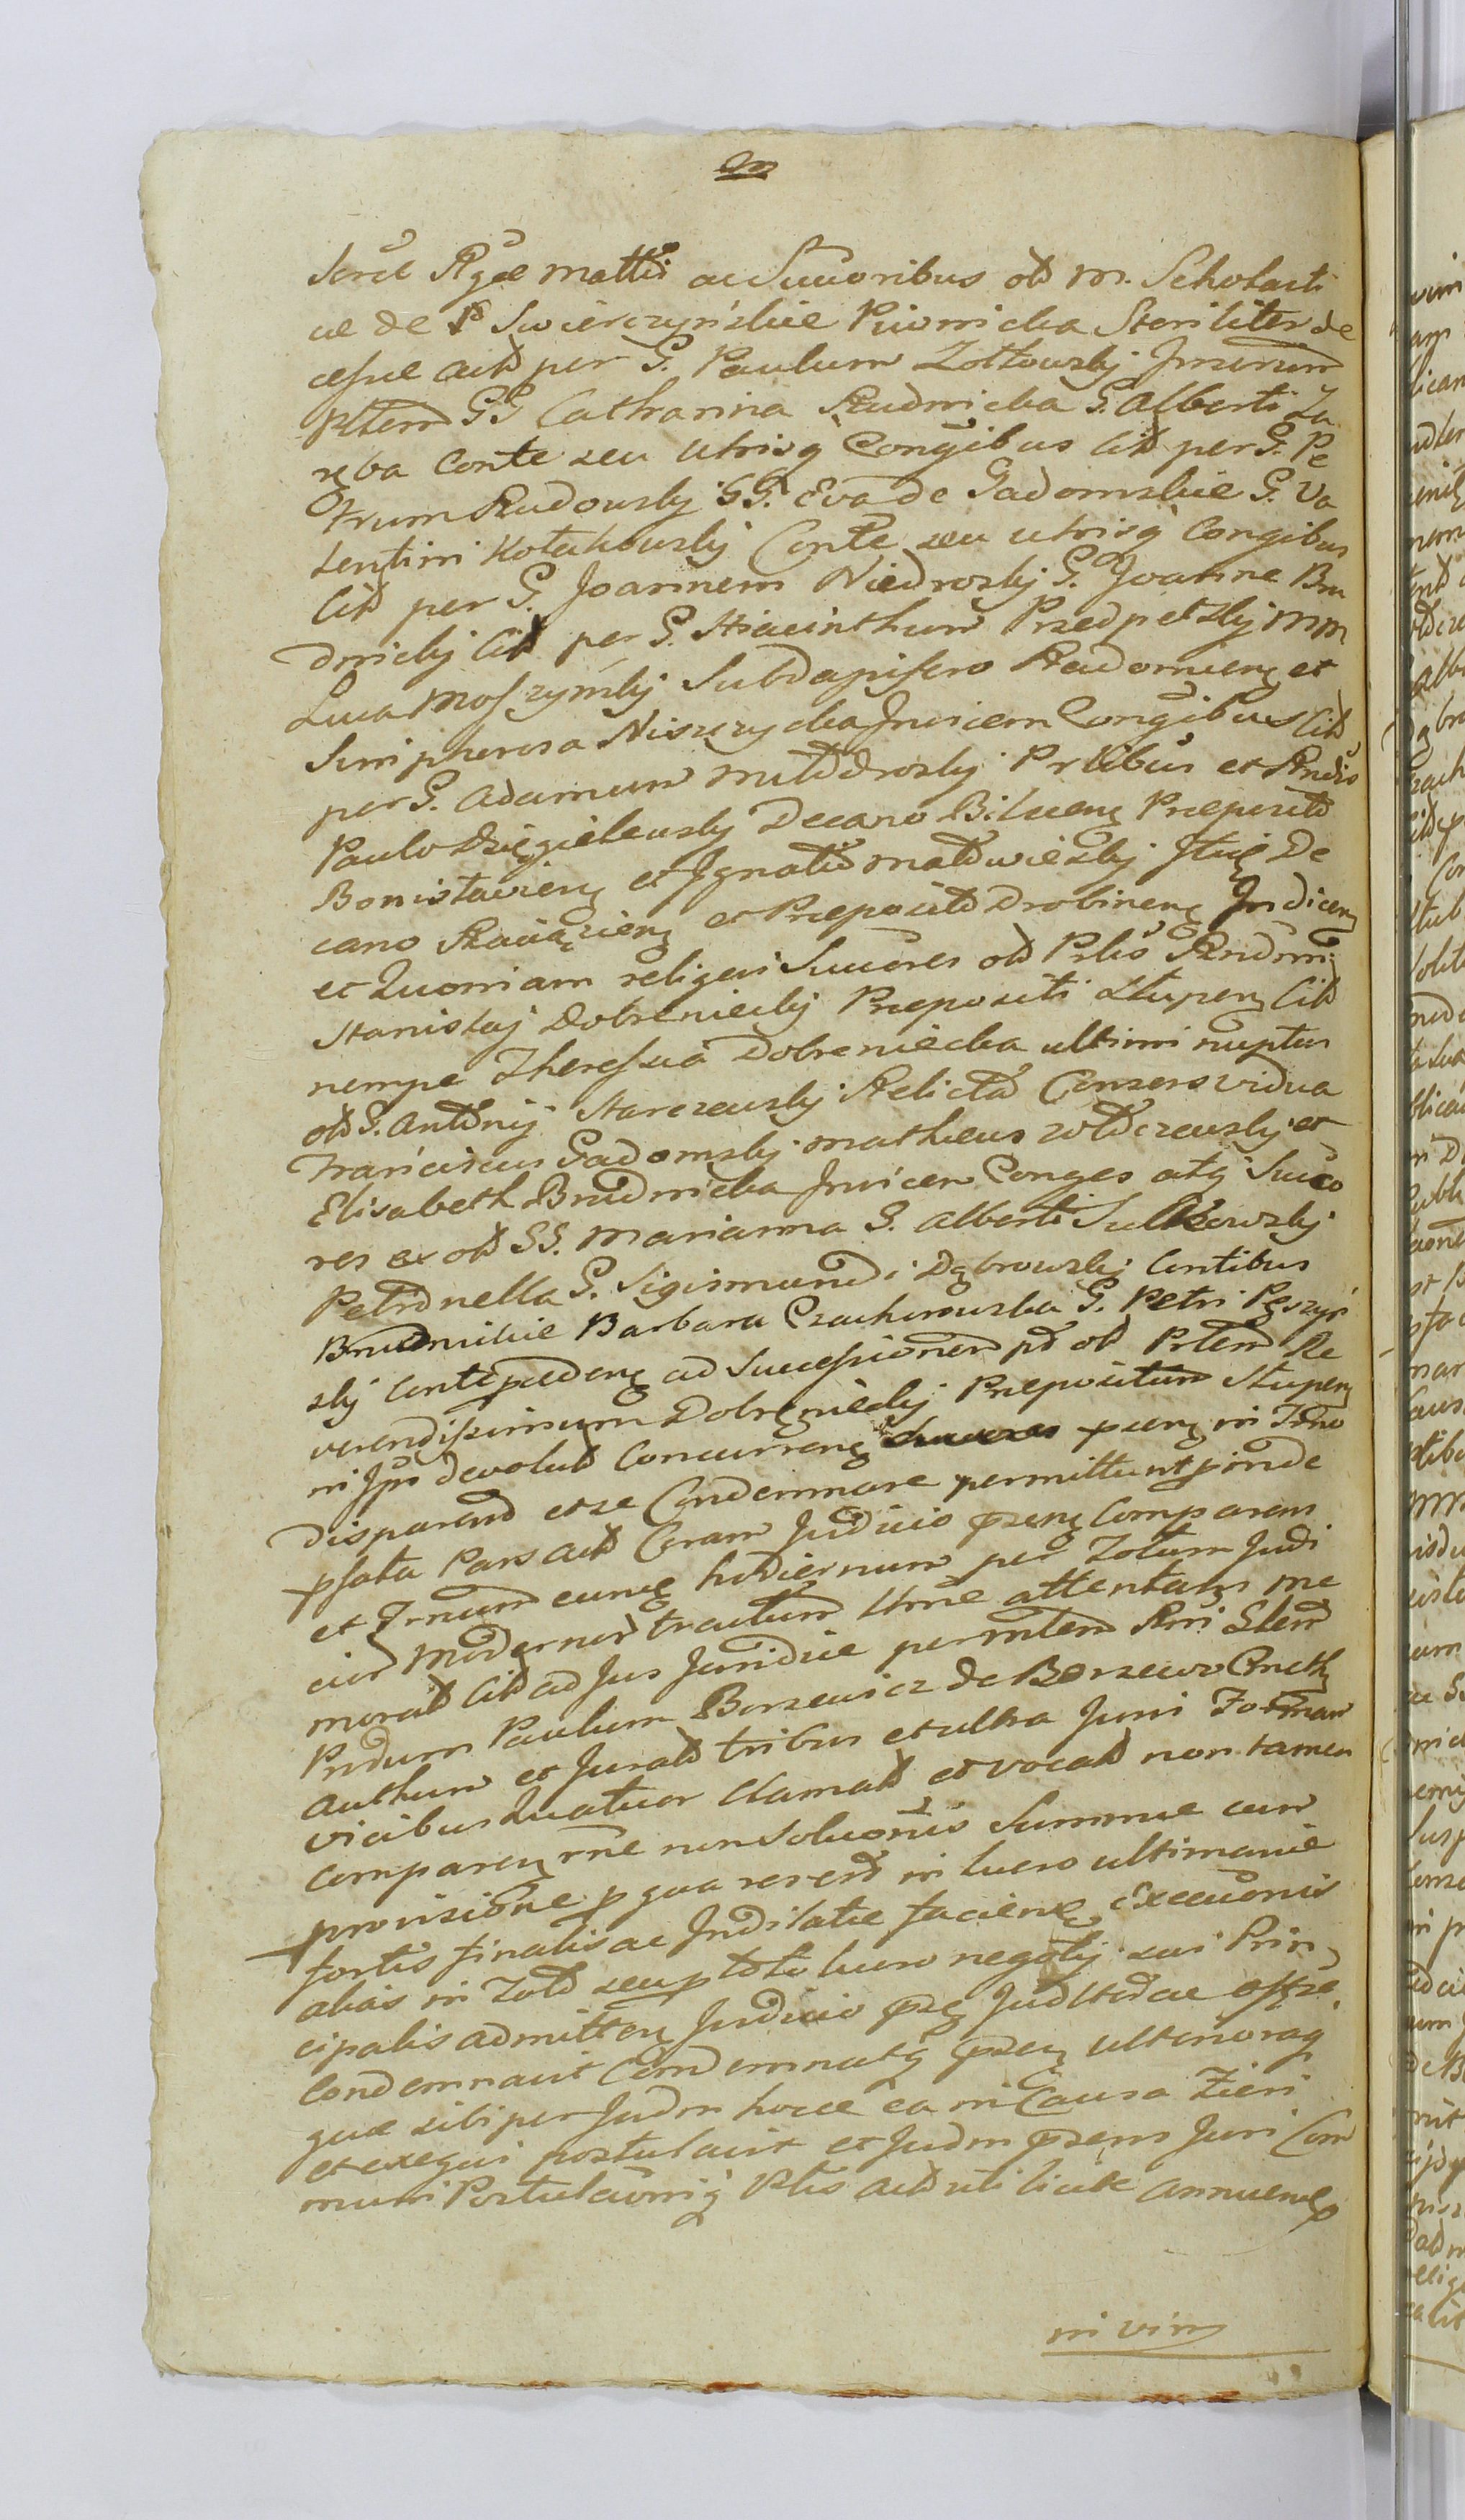 m
Seren Rgae Mattis ac Succoribus olt M. Scholasti
cae de Swierczyńskie Piwnicka Steriliter de
cessae actt per G. Paulum Zołtowsky Insersum
Pttem GG Catharina Rudnicka G. Alberti Za
ręba Conte seu utrisq Congibus citt per G. Pe
trum Rudowsky GG. Eva de Gadomskie G. Va
lentini Kołakowsky Conte seu utrisq Congibus
citt per G. Joannem Niedrosky G. Joanne Bru
dnicky Citt per G. Hiacinthum Przedpełsky MM
Luca Moszyńsky Subdapifero Radomien et
Simpherosa Niszczycka Invicem Congibus Citt
per G. Adamum Młtdrosky Prlibus et Rndis
Paulo Dzięgielewsky Decano Bilscen Praeposito
Bonislavien et Ignatio Małowiesky Itue De
cano Raciązien et Praeposito Drobinen Indicen
et Quoniam religui Succores olt Prlis Rndmi
Stanislaj Dobreniecky Praepositi Słupen Citt
nempe Theressia Dobreniecka ultimi nuptus
olt G. Antonij Starczewsky Relicta Consors vidua
Franciscus Gadomsky Matheus Żołtczewsky et
Elisabeth Brudnicka Invicem Conges atq Succo
res ex olt GG. Marianna G. Alberti Sulkowsky
Petronella G. Sigismundi Dąbrowsky Contibus
Brudnickie Barbara Czachorowska G. Petri Pęszyń
sky Conte paeden ad Successionem pt olt Prlem Re
verendissimum Dobręniecky Praepositum Słupen
in Ips devolut Concurren paen in Trno
disparend et se Condemnare permittunt proinde
psata Pars actt Coram Judicio praen Comparens
et Trnum eunq hodiernum per Totum Judi
cior Modernor tractum Hrne attentatus me
morat Citt ad Jus Juridice per mltem Rni Sttem
Prdum Paulum Borzewicz de Borzewo Coneth
authum et Jurat tribus et ultra Juni Forman
vicibus Quatuor Clamatt et vocatt non tamen
comparen rne non Soluonis Summae cum
provisione p qua reserd in lucro ultimariae
fortis finalis ac Indilatae faciene Execuonis
alias in Toto seu p toto lucro negotij sui Prin
cipalis admitten Judicio prae Juditdae
Condemnavit Condemnatq praen ulteriorag
quae sibi per Judm hocce ea in Causa Fieri
et exequi postulavit et Judm praens Juri Com
muni Postulaoniq Ptis actt uti licitae annuendo
in vim